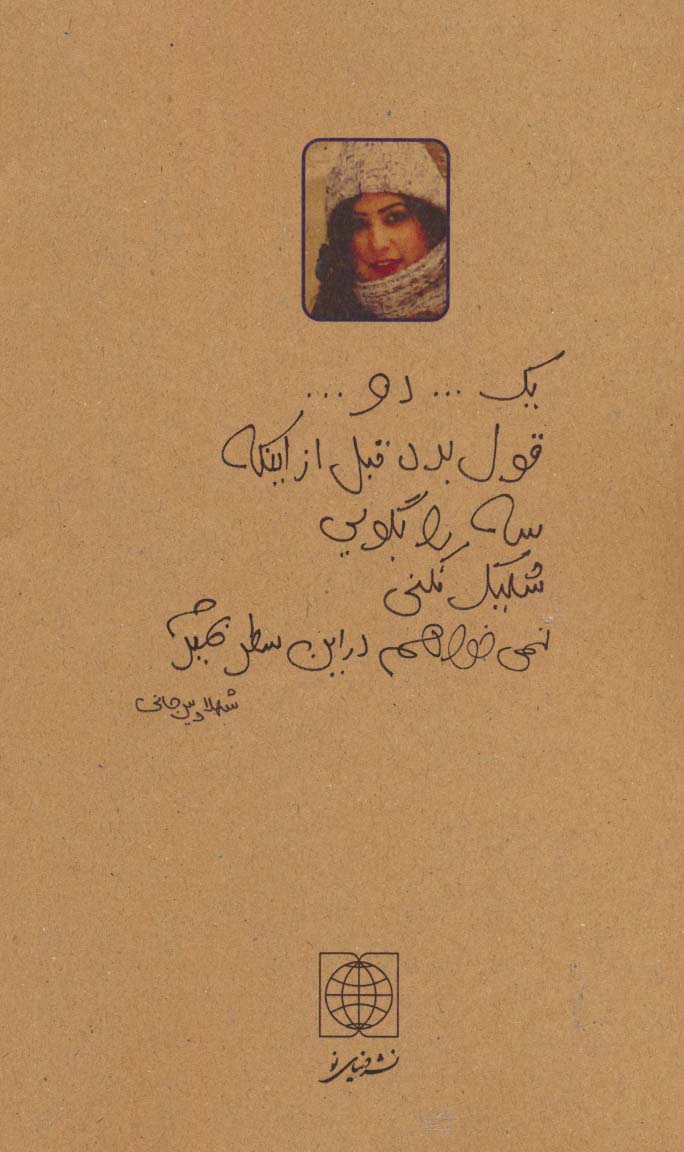 یک ... دو ...
قول بده قبل از اینکه
سه را بگویی
شلیک نکنی
نمی‌خواهم در این سطر بمیرم
شهلا
نشر دنیای نو